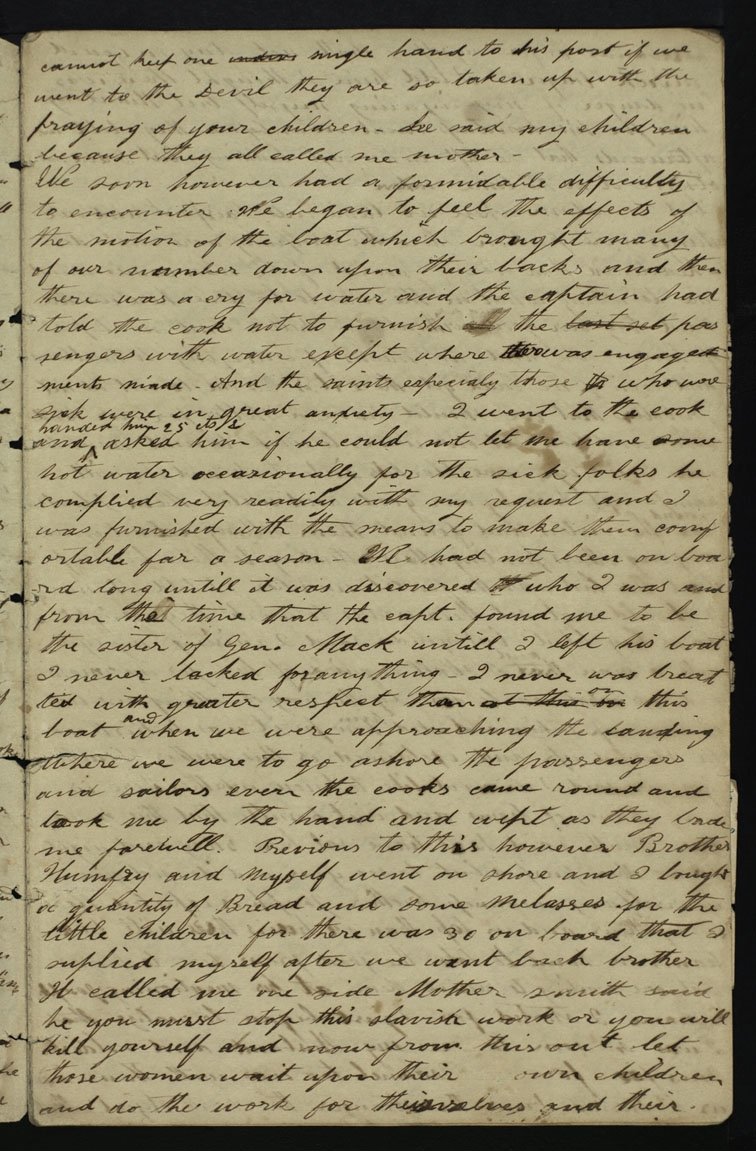 cannot keep one single hand to his post if we
went to the Devil they are so taken up with the
praying of your children - He said my children
because they all called me mother -
We soon however had a formidable difficulty
to encounter We began to feel the effects of
the motion of the boat which brought many
of our number down upon their backs and then
there was a cry for water and the captain had
told the cook not to furnish all the last set pas
sengers with water except where was engage
ments made - And the saints especialy those who were
sick were in great anxiety - I went to the cook
handed him 25 cts
and asked him if he could not let me have some
hot water occasionally for the sick folks he
complied very readily with my request and I
was furnished with the means to make them comf
ortable for a season - We had not been on boa
rd long untill it was discovered who I was and
from the time that the capt. found me to be
the sister of Gen. Mack untill I left his boat
I never lacked for anything - I never was treat
ted with greater respect than at this on on this
boat and when we were approaching the landing
where we were to go ashore the passengers
and sailors even the cooks came round and
took me by the hand and wept as they bade
me farewell. Previous to this however Brother
Humfry and myself went on shore and I bought
a quantity of Bread and some Melasses for the
little children for there was 30 on board that I
suplied myself after we want back brother
H called me one side Mother smith said
he you must stop this slavish work or you will
kill yourself and now from this out let
those women wait upon their own children
and do the work for theirselves and their